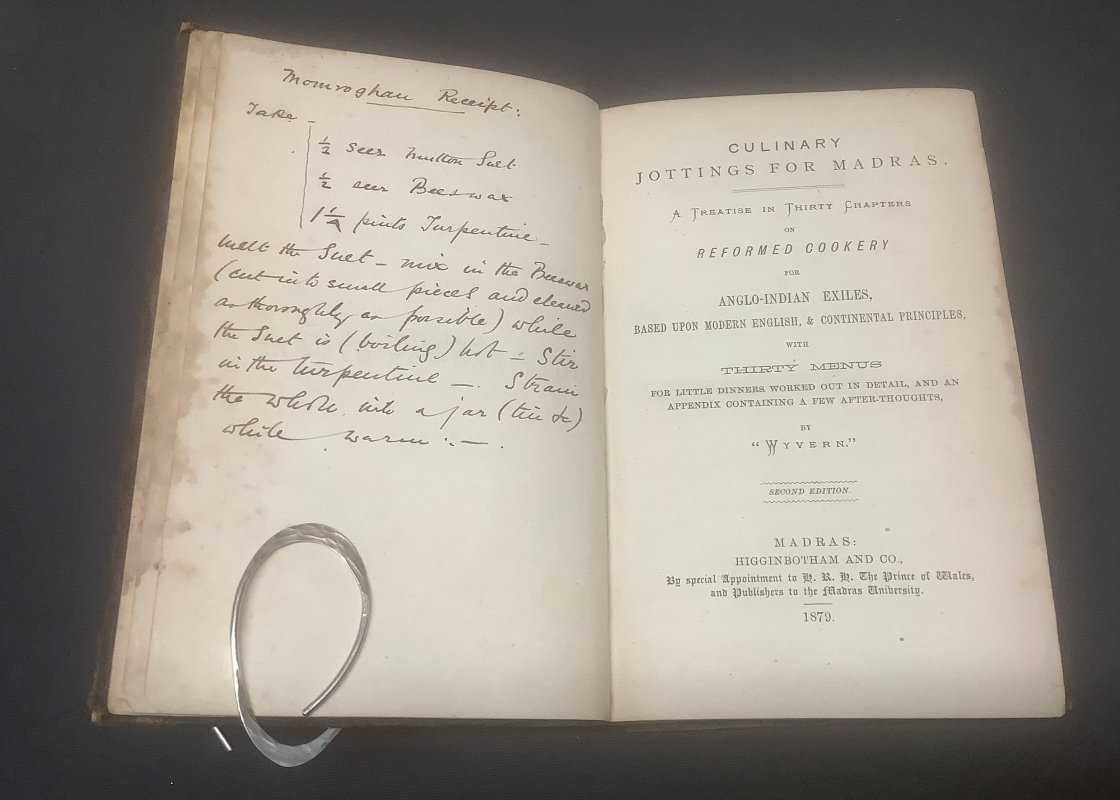 Momroghan Receipt:
Take -
1/2 seer Mutton Suet
1/2 seer Beeswax
1 1/4 pints Turpentine -
Melt the Suet - mix in the Beeswax
(cut into small pieces and cleaned
as thoroughly as possible) while
the Suet is (boiling) hot - Stir
in the turpentine -. Strain
the whole into a jar (tin &c)
while warm :-.
CULINARY
JOTTINGS FOR MADRAS.
A TREATISE IN THIRTY CHAPTERS
ON
REFORMED COOKERY
FOR
ANGLO-INDIAN EXILES,
BASED UPON MODERN ENGLISH, & CONTINENTAL PRINCIPLES,
WITH
THIRTY MENUS
FOR LITTLE DINNERS WORKED OUT IN DETAIL, AND AN
APPENDIX CONTAINING A FEW AFTER-THOUGHTS,
BY
"WYVERN."
SECOND EDITION.
MADRAS:
HIGGINBOTHAM AND CO.,
By special Appointment to H. R. H. The Prince of Wales,
and Publishers to the Madras University.
1879.